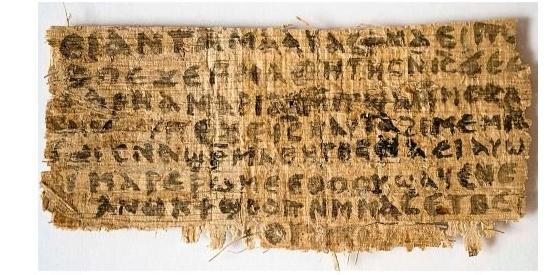 ⲉⲓ ⲁⲛ ⲧⲁⲙⲁⲁⲩ ⲁⲥϯ ⲛⲁⲉⲓ ⲡ
ⲙⲁⲑⲏⲧⲏⲥ ⲛⲓⲥ ϫⲉ ⲥ
ⲁⲣⲛⲁ ⲙⲁⲣⲓⲁⲙ
ⲡⲉϫⲉ ⲓⲥ ⲛⲁⲩ ⲧⲁϩⲓⲙⲉ ⲙⲛ
ⲥⲛⲁϣⲣⲙⲁⲑⲏⲧⲏⲥ ⲛⲁⲉⲓ ⲁⲩⲱ
ⲙⲁⲣⲉⲣⲱⲙⲉ ⲉⲑⲟⲟⲩ ϣⲁϥⲉ ⲛⲉ
ⲁⲛⲟⲕ ϯϣⲟⲟⲡ ⲛⲙⲙⲁⲥ ⲉⲧⲃⲉ